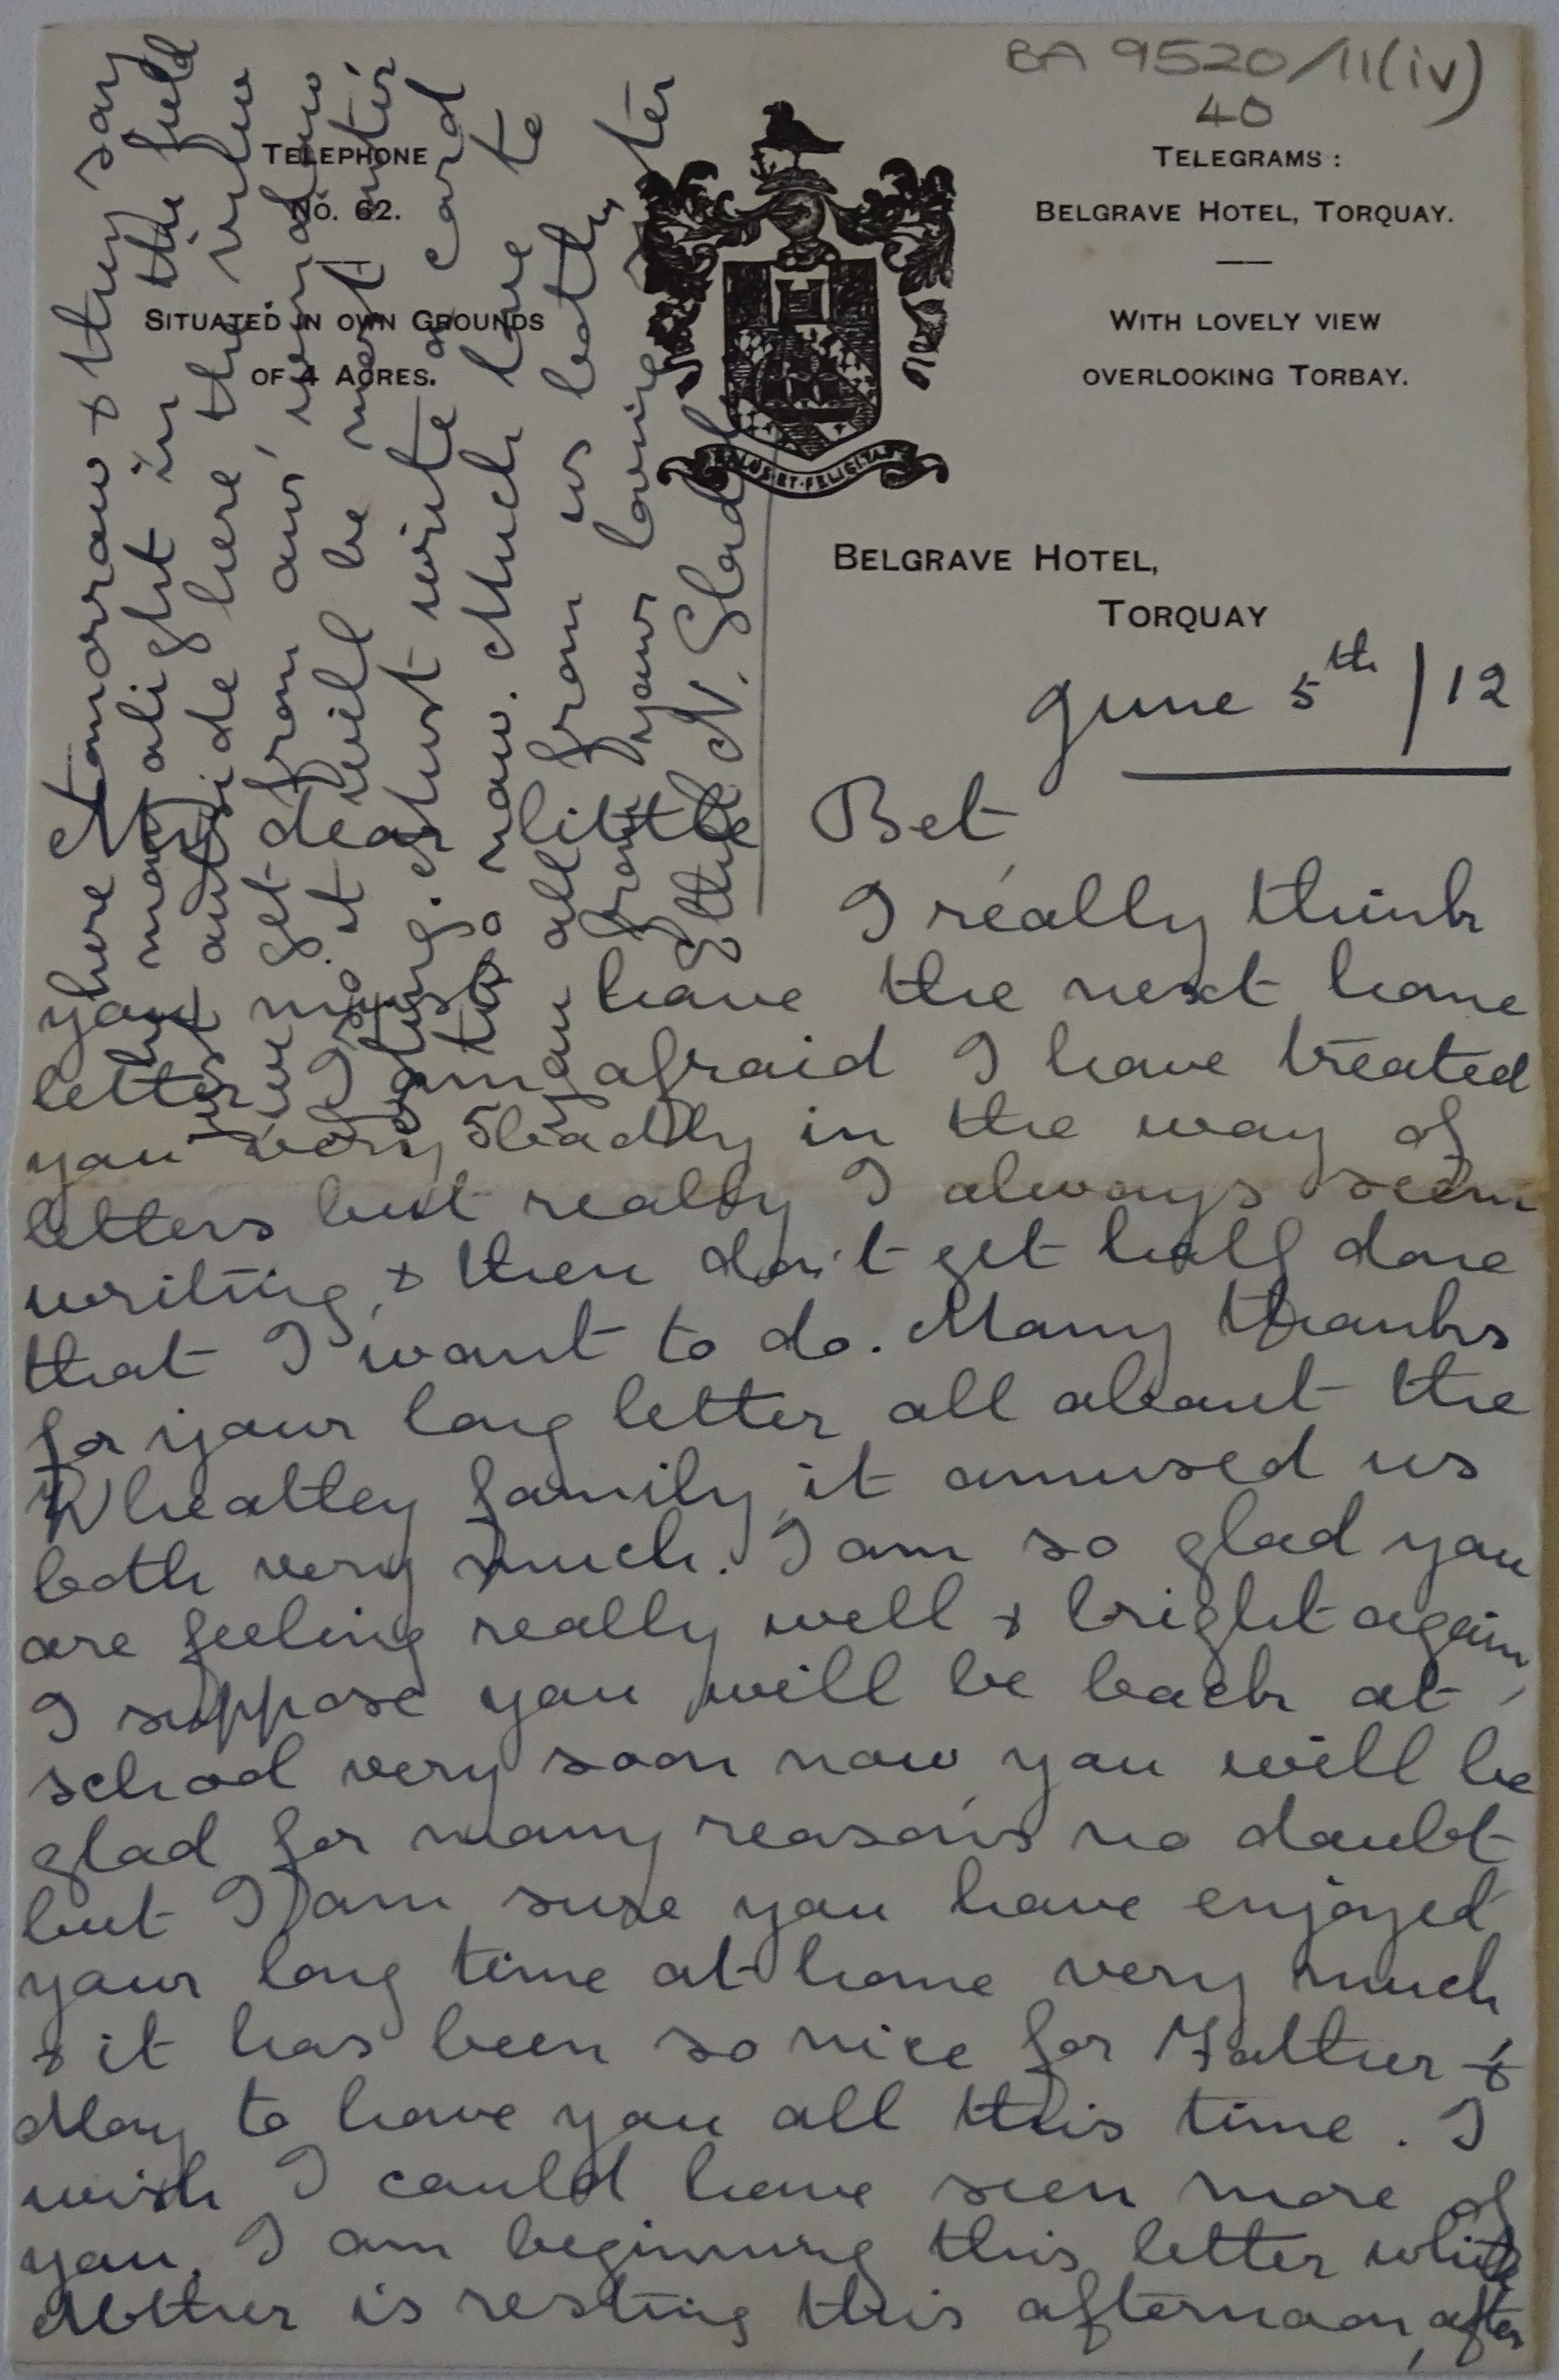 BA 9520/11(iv)
40
TELEPHONE
NO. 62.
SITUATED IN OWN GROUNDS
OF 4 ACRES.
TELEGRAMS:
BELGRAVE HOTEL, TORQUAY.
WITH LOVELY VIEW
OVERLOOKING TORBAY.
SALUS·ET·FELICITAS
BELGRAVE HOTEL,
TORQUAY
June 5th /12
My dear little Bet
I really think
you must have the next home
letter, I am afraid I have treated
you very badly in the way of
letters but really I always seem
writing, & then don't get half done
that I want to do. Many thanks
for your long letter all about the
Wheatley family, it amused us
both very much. I am so glad you
are feeling really well & bright again,
I suppose you will be back at
school very soon now, you will be
glad for many reasons no doubt
but I am sure you have enjoyed
your long time at home very much
& it has been so nice for Father &
May to have you all this time. I
wish I could have seen more of
you. I am beginning this letter while
Mother is resting this afternoon, after
here tomorrow & they say
may alight in the field
just outside here the view
we get from our window
so it will be most inter
esting. I must write a card
to now. Much love to
you all from us both,
from your loving sister
Ethel N.